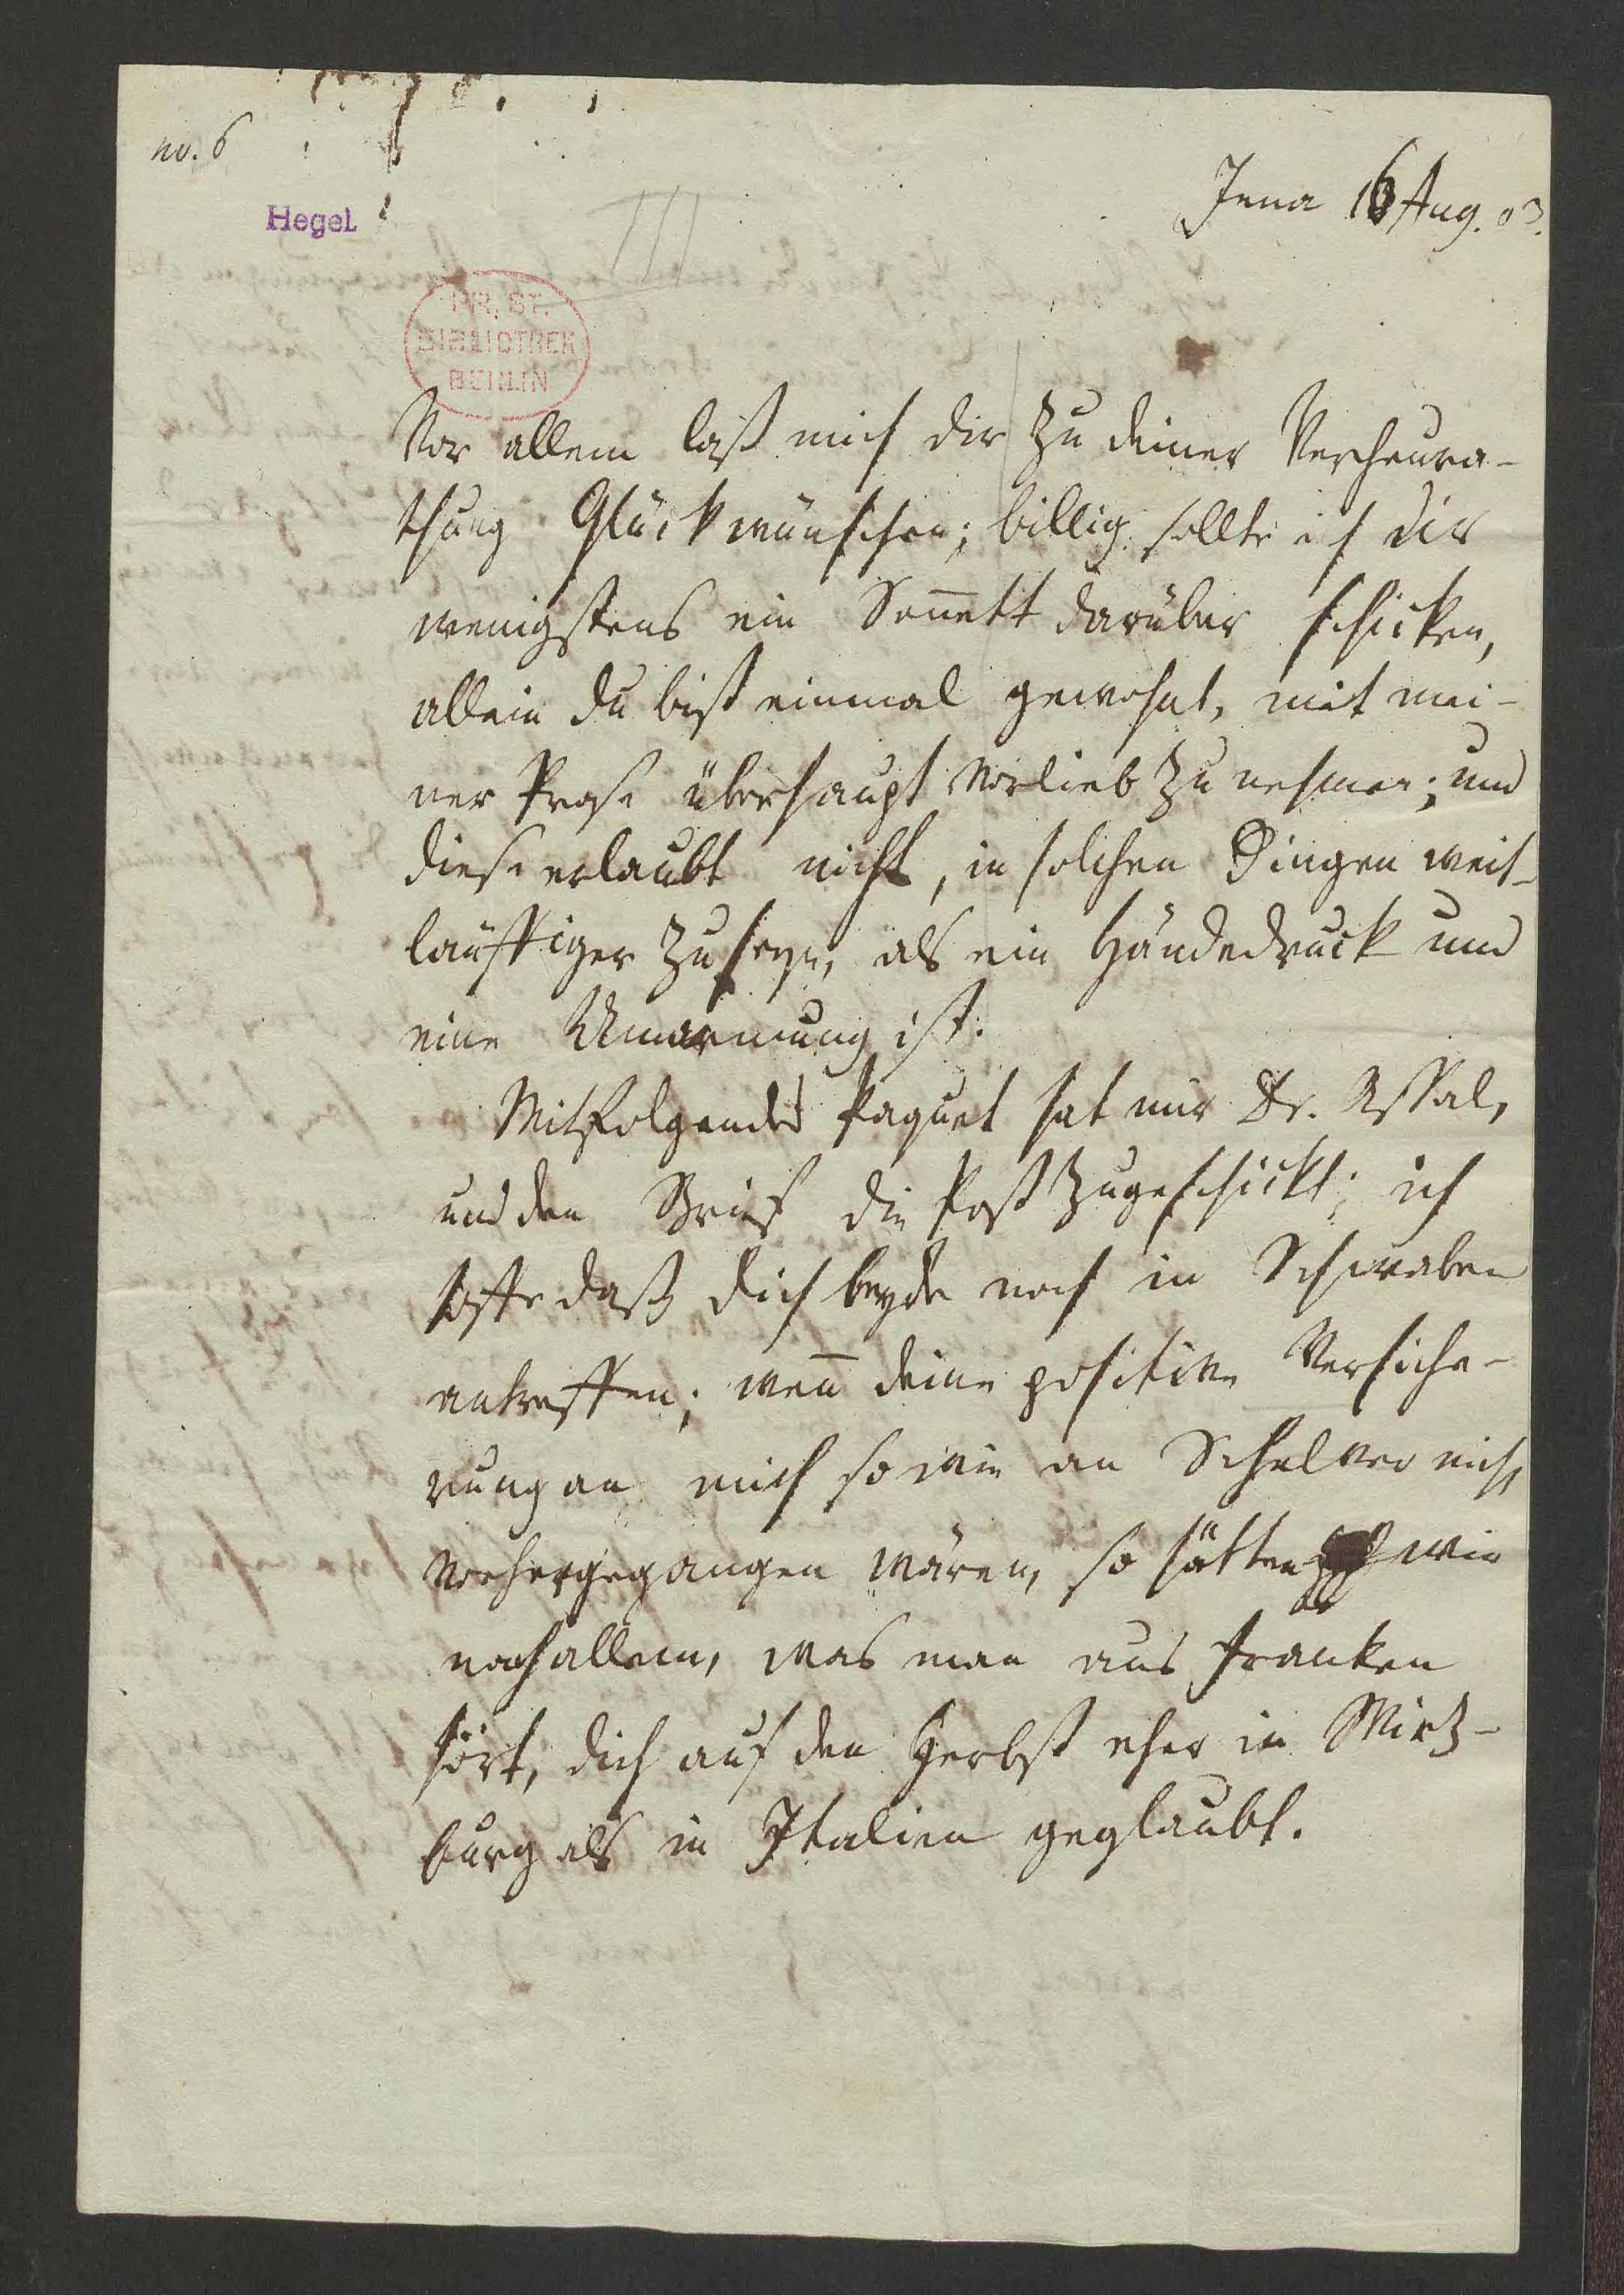 no. 6
Jena 16 Aug. 03.
Hegel
PR. ST.
BIBLIOTHEK
BERLIN
Vor allem laß mich dir zu deiner Verheura-
thung Glück wünschen; billig sollte ich dir
wenigstens ein Son̄ett darüber schicken,
allein du bist einmal gewohnt, mit mei-
ner Prose überhaupt vorlieb zu nehmen; und
diese erlaubt nicht, in solchen Dingen weit-
läuffiger zu seyn, als ein Händedruck und
eine Umarmung ist.
Mitfolgendes Paquet hat mir Dr. Assal,
und den Brief die Post zugeschickt; ich
hoffe daß dich beyde noch in Schwaben
antreffen; wen̄ deine positive Versiche-
rung an mich so wie an Schelver nicht
vorhergegangen wären, so hätten wir
nach allem, was man aus Franken
hört, dich auf den Herbst eher in Wirtz-
burg als in Italien geglaubt.